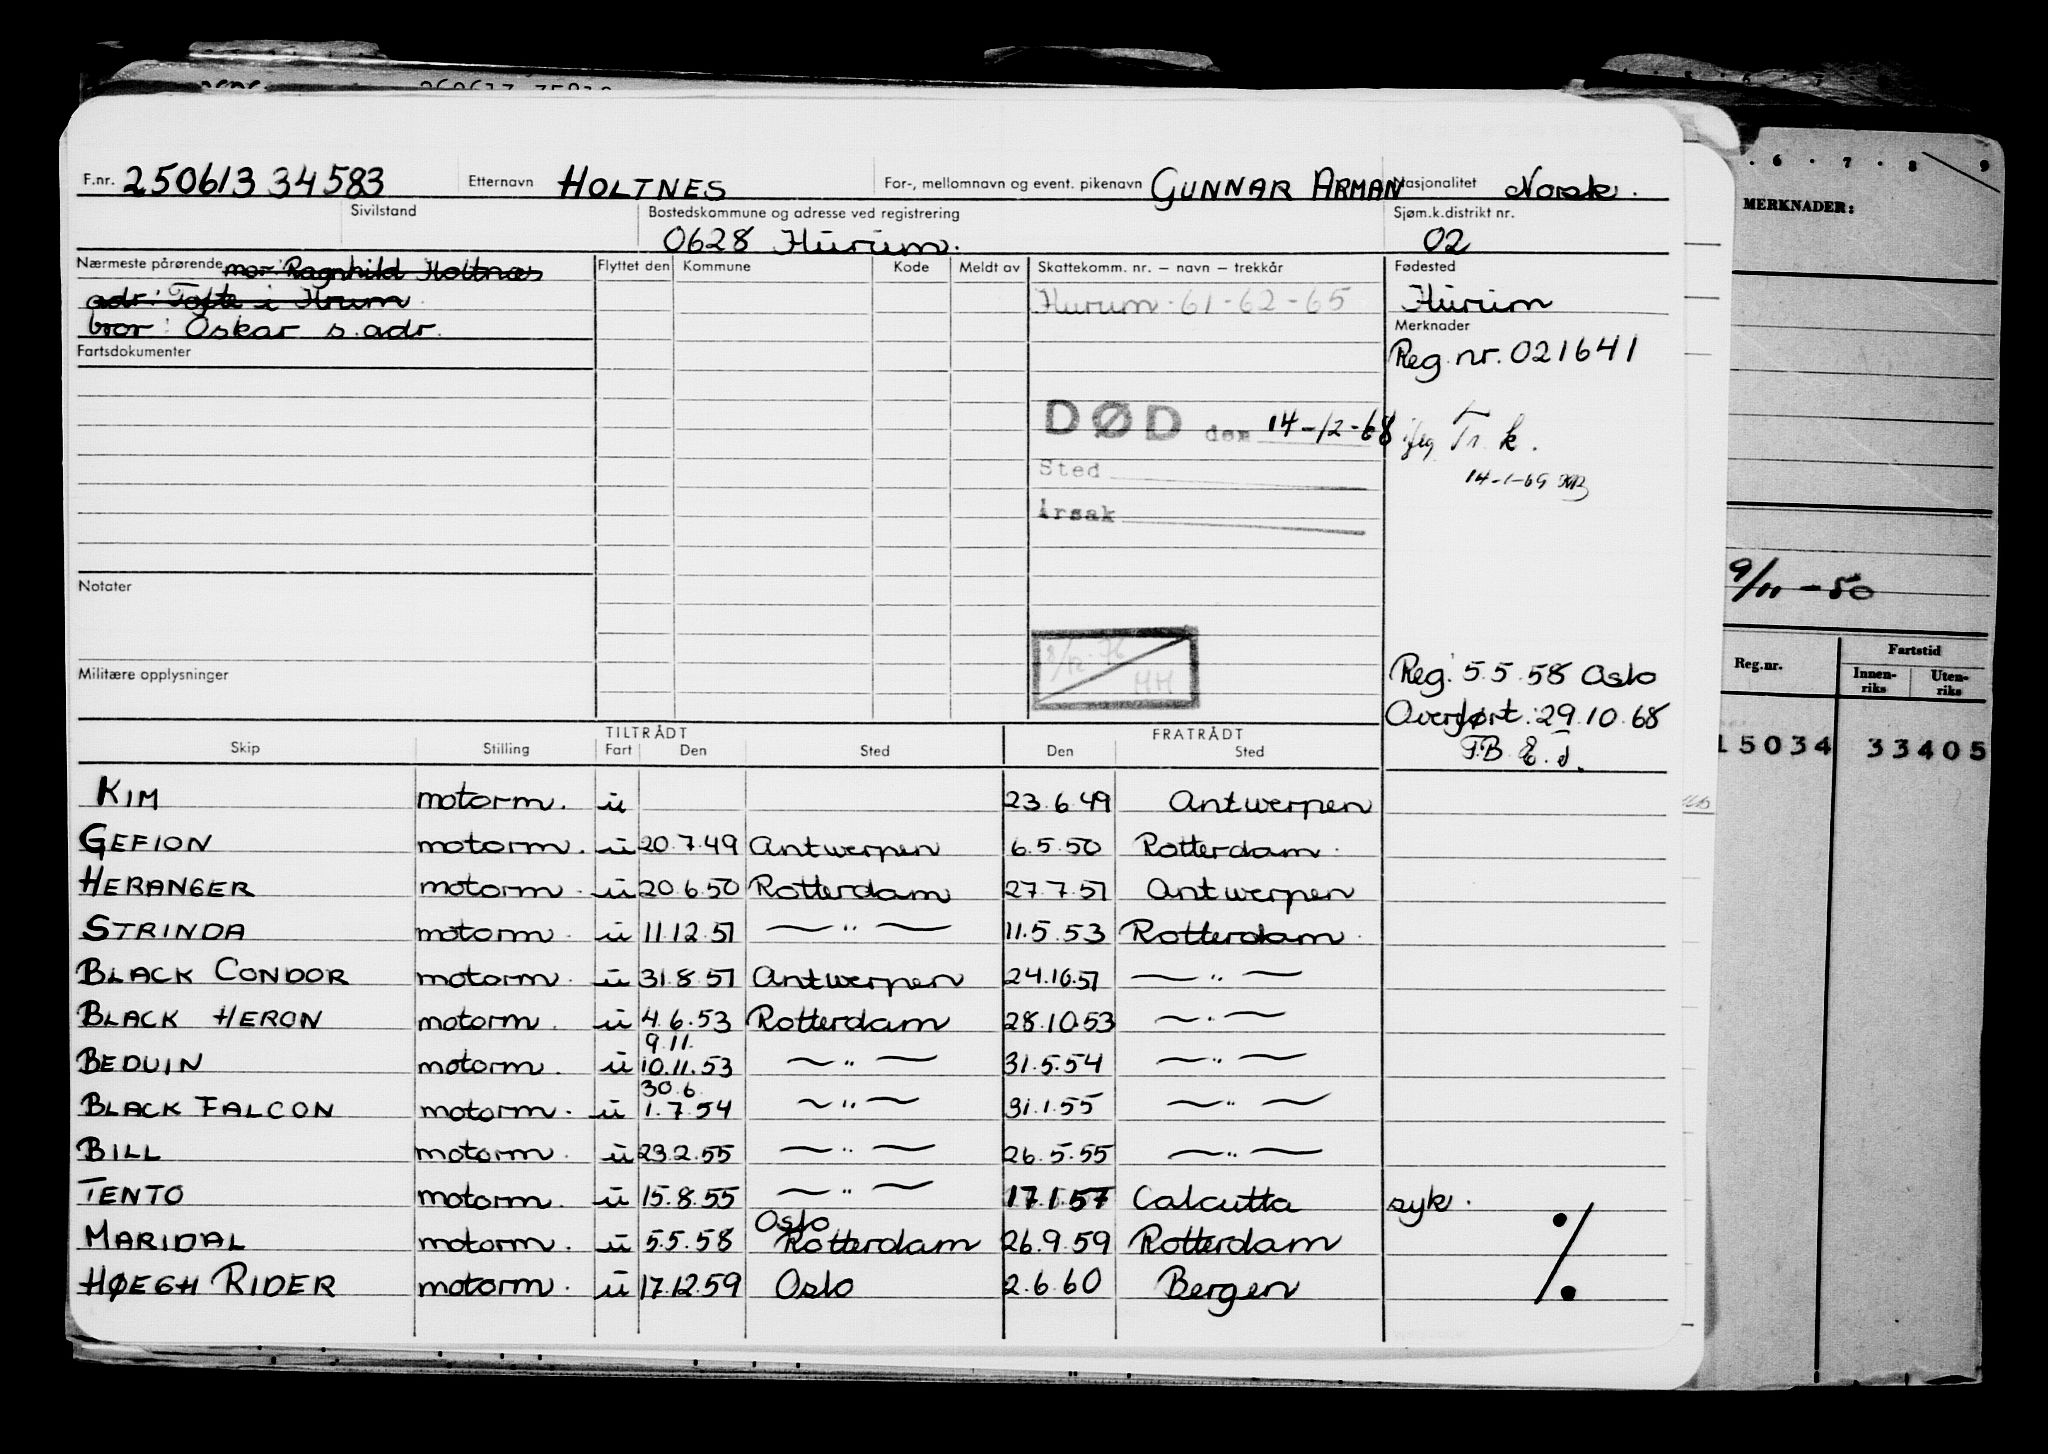 F.nr. 250613 34583 Etternavn HOLTNES For-, mellomnavn og event. pikenavn GUNNAR ARMAN Nasjonalitet Norsk.
Sivilstand Bostedskommune og adresse ved registrering Sjøm.k.distrikt nr.
0628 Hurum. 02
Nærmeste pårørende mor: Ragnhild Holtnæs Flyttet den Kommune Kode Meldt av Skattekomm. nr. – navn – trekkår Fødested
adr: Tofte i Hrum Hurum 61-62-65 Hurum
bror: Oskar s. adr. Merknader
Fartsdokumenter Reg. nr. 021641
DØD den 14-12-68 Tr. k.
Sted 14-1-69
Årsak
Notater
Militære opplysninger Reg. 5.5.58 Oslo
Overført: 29.10.68
TILTRÅDT FRATRÅDT
Skip Stilling Fart Den Sted Den Sted
KIM motorm. u 23.6.49 Antwerpen
GEFION motorm. u 20.7.49 Antwerpen 6.5.50 Rotterdam.
HERANGER motorm. u 20.6.50 Rotterdam 27.7.51 Antwerpen
STRINDA motorm. u 11.12.51 — " — 11.5.53 Rotterdam.
BLACK CONDOR motorm. u 31.8.51 Antwerpen 24.10.51 — " —
BLACK HERON motorm. u 4.6.53 Rotterdam 28.10.53 — " —
9.11.
BEDUIN motorm. u 10.11.53 — " — 31.5.54 — " —
30.6.
BLACK FALCON motorm. u 1.7.54 — " — 31.1.55 — " —
BILL motorm. u 23.2.55 — " — 26.5.55 — " —
TENTO motorm. u 15.8.55 — " — 17.1.57 Calcutta syk.
Oslo
MARIDAL motorm. u 5.5.58 Rotterdam 26.9.59 Rotterdam
HØEGH RIDER motorm. u 17.12.59 Oslo 2.6.60 Bergen
./.
6 . 7 . 8 9
MERKNADER:
9/11 - 50
Reg.nr. Fartstid
Innen-riks Uten-riks
15034 33405